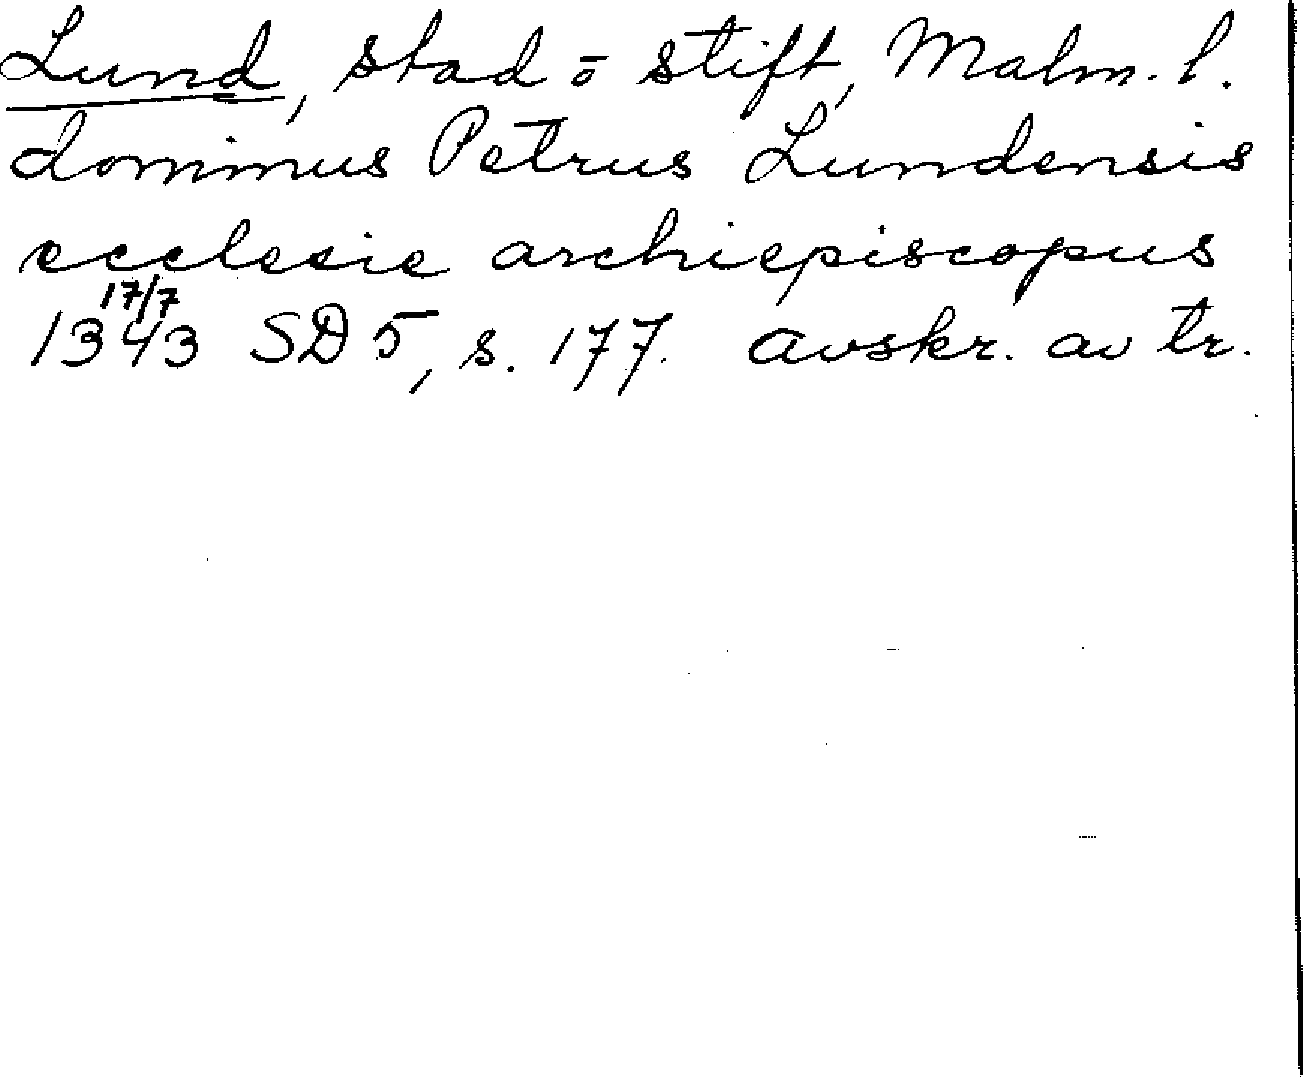 Lund, stad o stift, Malm. l.
dominus Petrus Lundensis
ecclesie archiepiscopus
17/7
1343 SD 5, s. 177. avskr. av tr.